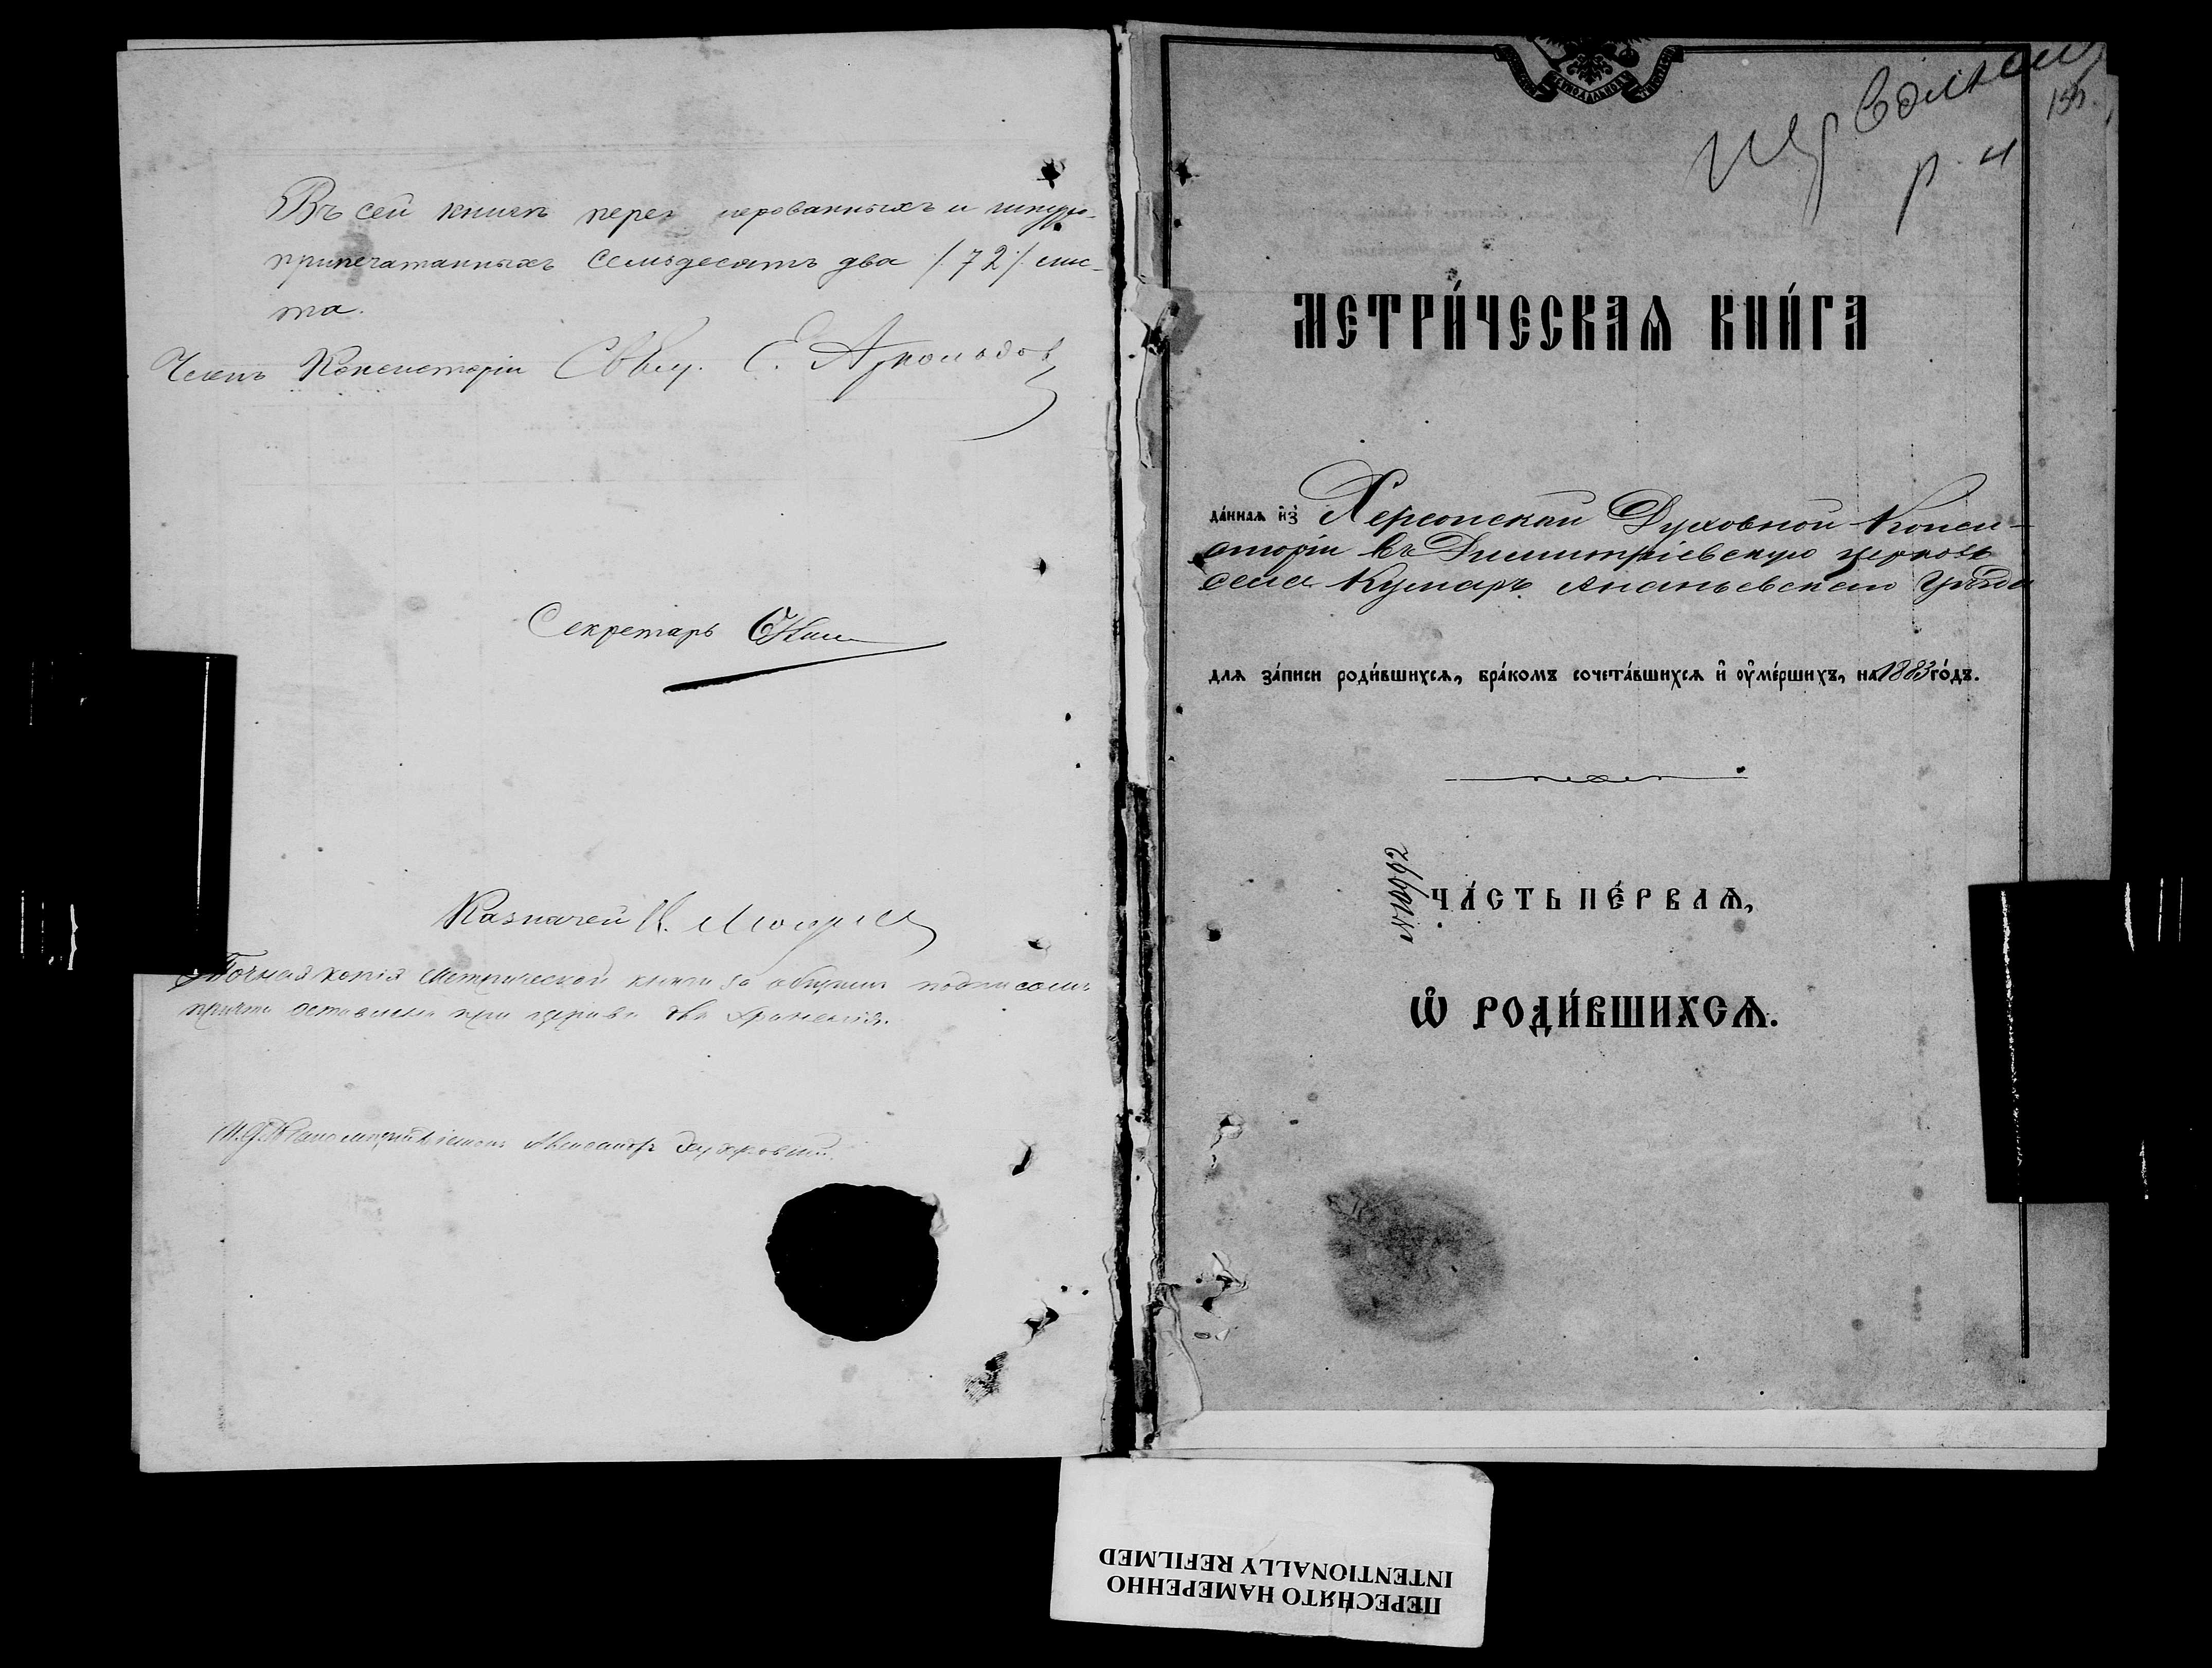 Въ сей книгѣ перенумерованныхъ и шнуро-
припечатанныхъ семьдесятъ два /72/ лис-
та.
Членъ Консисторіи Свящ.
Секретарь
Казначей
Точная копія метрической книги за общимъ подписомъ
причта оставлена при церкви для храненія.
Александръ
МЕТРИ́ЧЕСКАѦ КНИ́ГА
да́ннаѧ и҆зъ Херсонской Духовной Конси-
сторіи въ Димитріевскую церковь
села Кумаръ Ананьевскаго уѣзда
длѧ за́писи роди́вшихсѧ, бра́комъ сочета́вшихсѧ и҆ оу҆ме́ршихъ, на 1883 го́дъ.
№ 10992
ЧА́СТЬ ПЕ́РВАѦ,
Ѡ҆ РОДИ́ВШИХСѦ.
ПЕРЕСНЯТО НАМЕРЕННО
INTENTIONALLY REFILMED